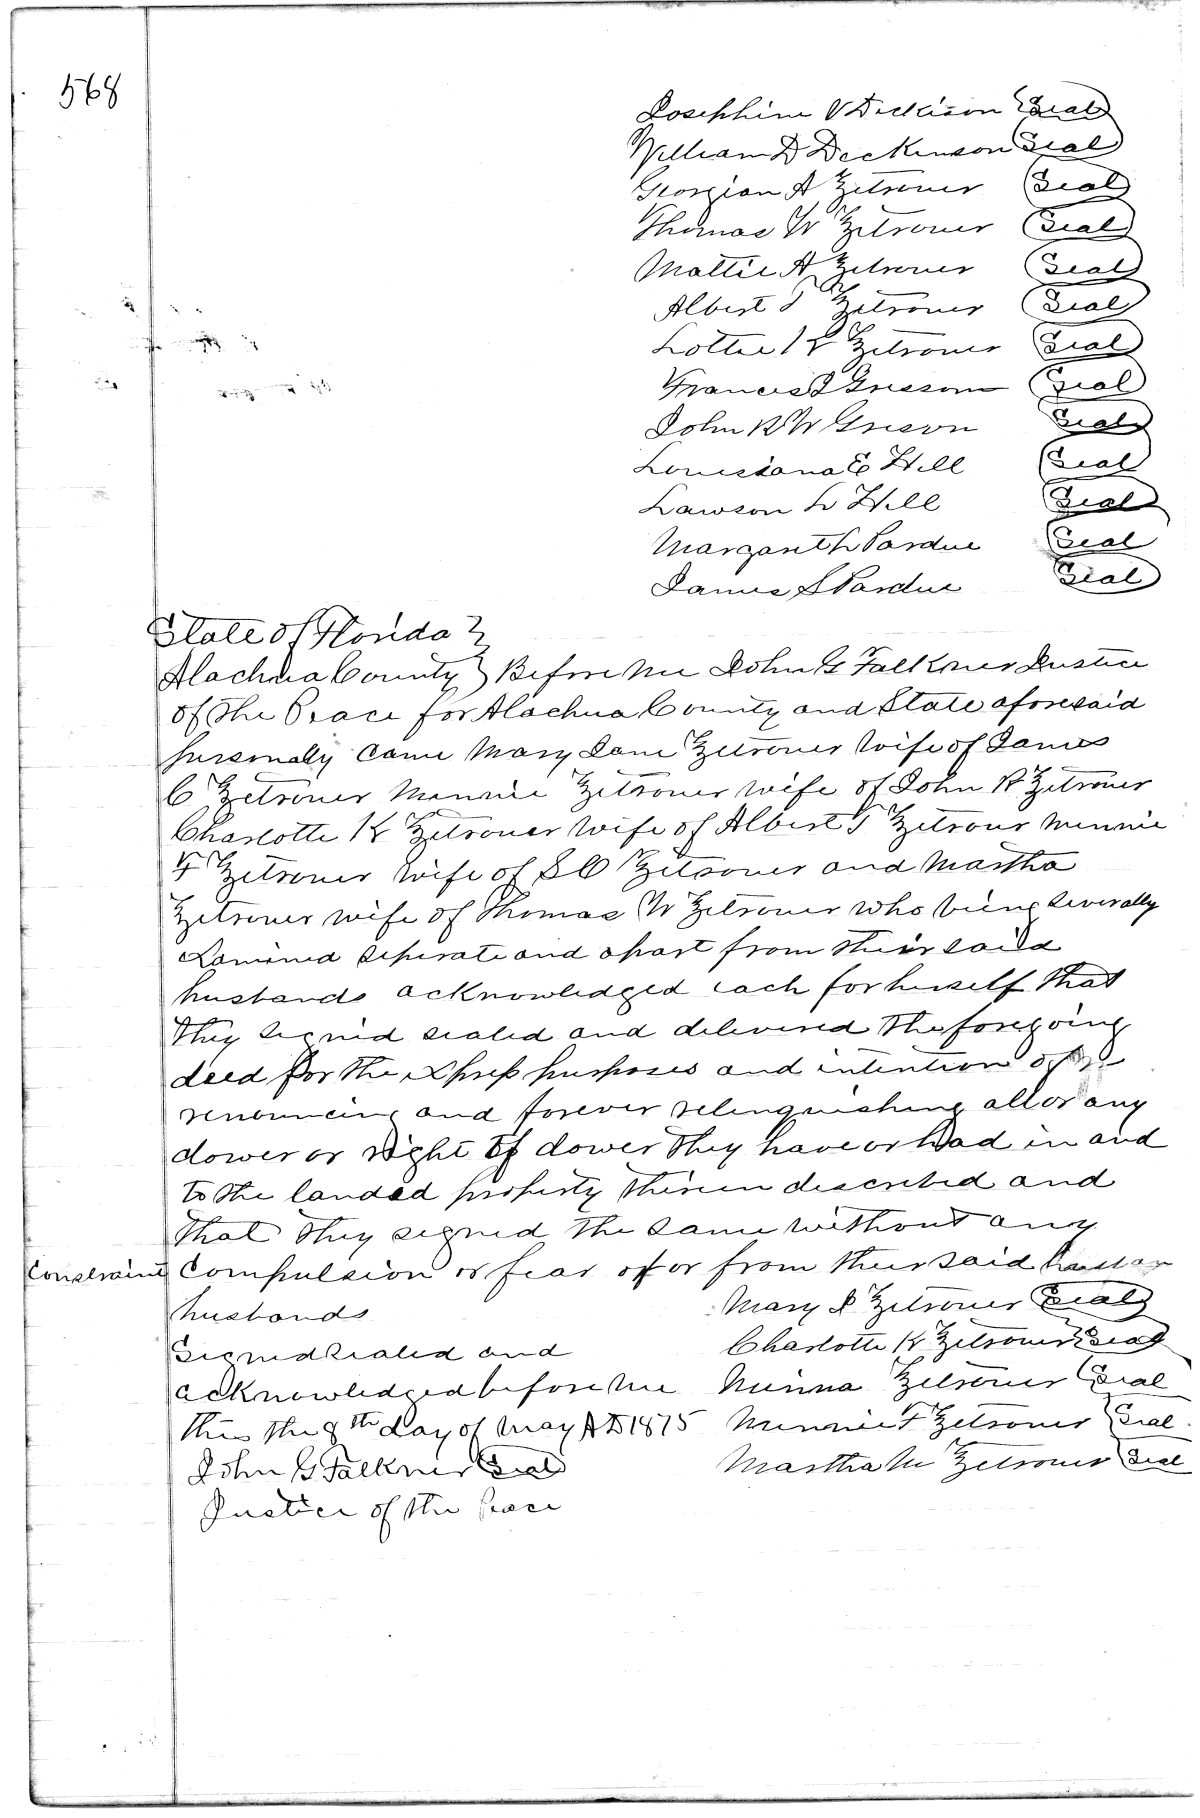 568
Josephine V Dickison Seal
William D Deckenson Seal
Georgian A Zetrouer Seal
Thomas W Zetrouer Seal
Mattie A Zetrouer Seal
Albert T Zetrouer Seal
Lottie K Zetrouer Seal
Francis I Grissom Seal
John R W Grison Seal
Louisiana E Hill Seal
Lawson L Hill Seal
Margareth Pardue Seal
James S Pardue Seal
State of Florida }
Alachua County } Before me John G Falkner Justice
of the Peace for Alachua County and State aforesaid
personally came Mary Jane Zetrouer wife of James
C Zetrouer Minnie Zetrouer wife of John R Zetrouer
Charlotte K Zetrouer wife of Albert T Zetrour Minnie
F Zetrouer wife of S C Zetrouer and Martha
Zetrouer wife of Thomas W Zetrouer who being severally
Examined seperate and apart from their said
husbands acknowledged each for herself that
they signed sealed and delivered the foregoing
deed for the Express purposes and intention of
renouncing and forever relenquishing all or any
dower or right of dower they have or had in and
to the landed property therein described and
that they signed the same without any
Constraint Compulsion or fear of or from their said
husbands Mary J Zetrouer Seal
Signed Sealed and Charlotte K Zetrouer Seal
acknowledged before me Minna Zetrouer Seal
this the 8th day of May AD 1875 Minnie F Zetrouer Seal
John G Falkner Seal Martha M Zetrouer Seal
Justice of the Peace